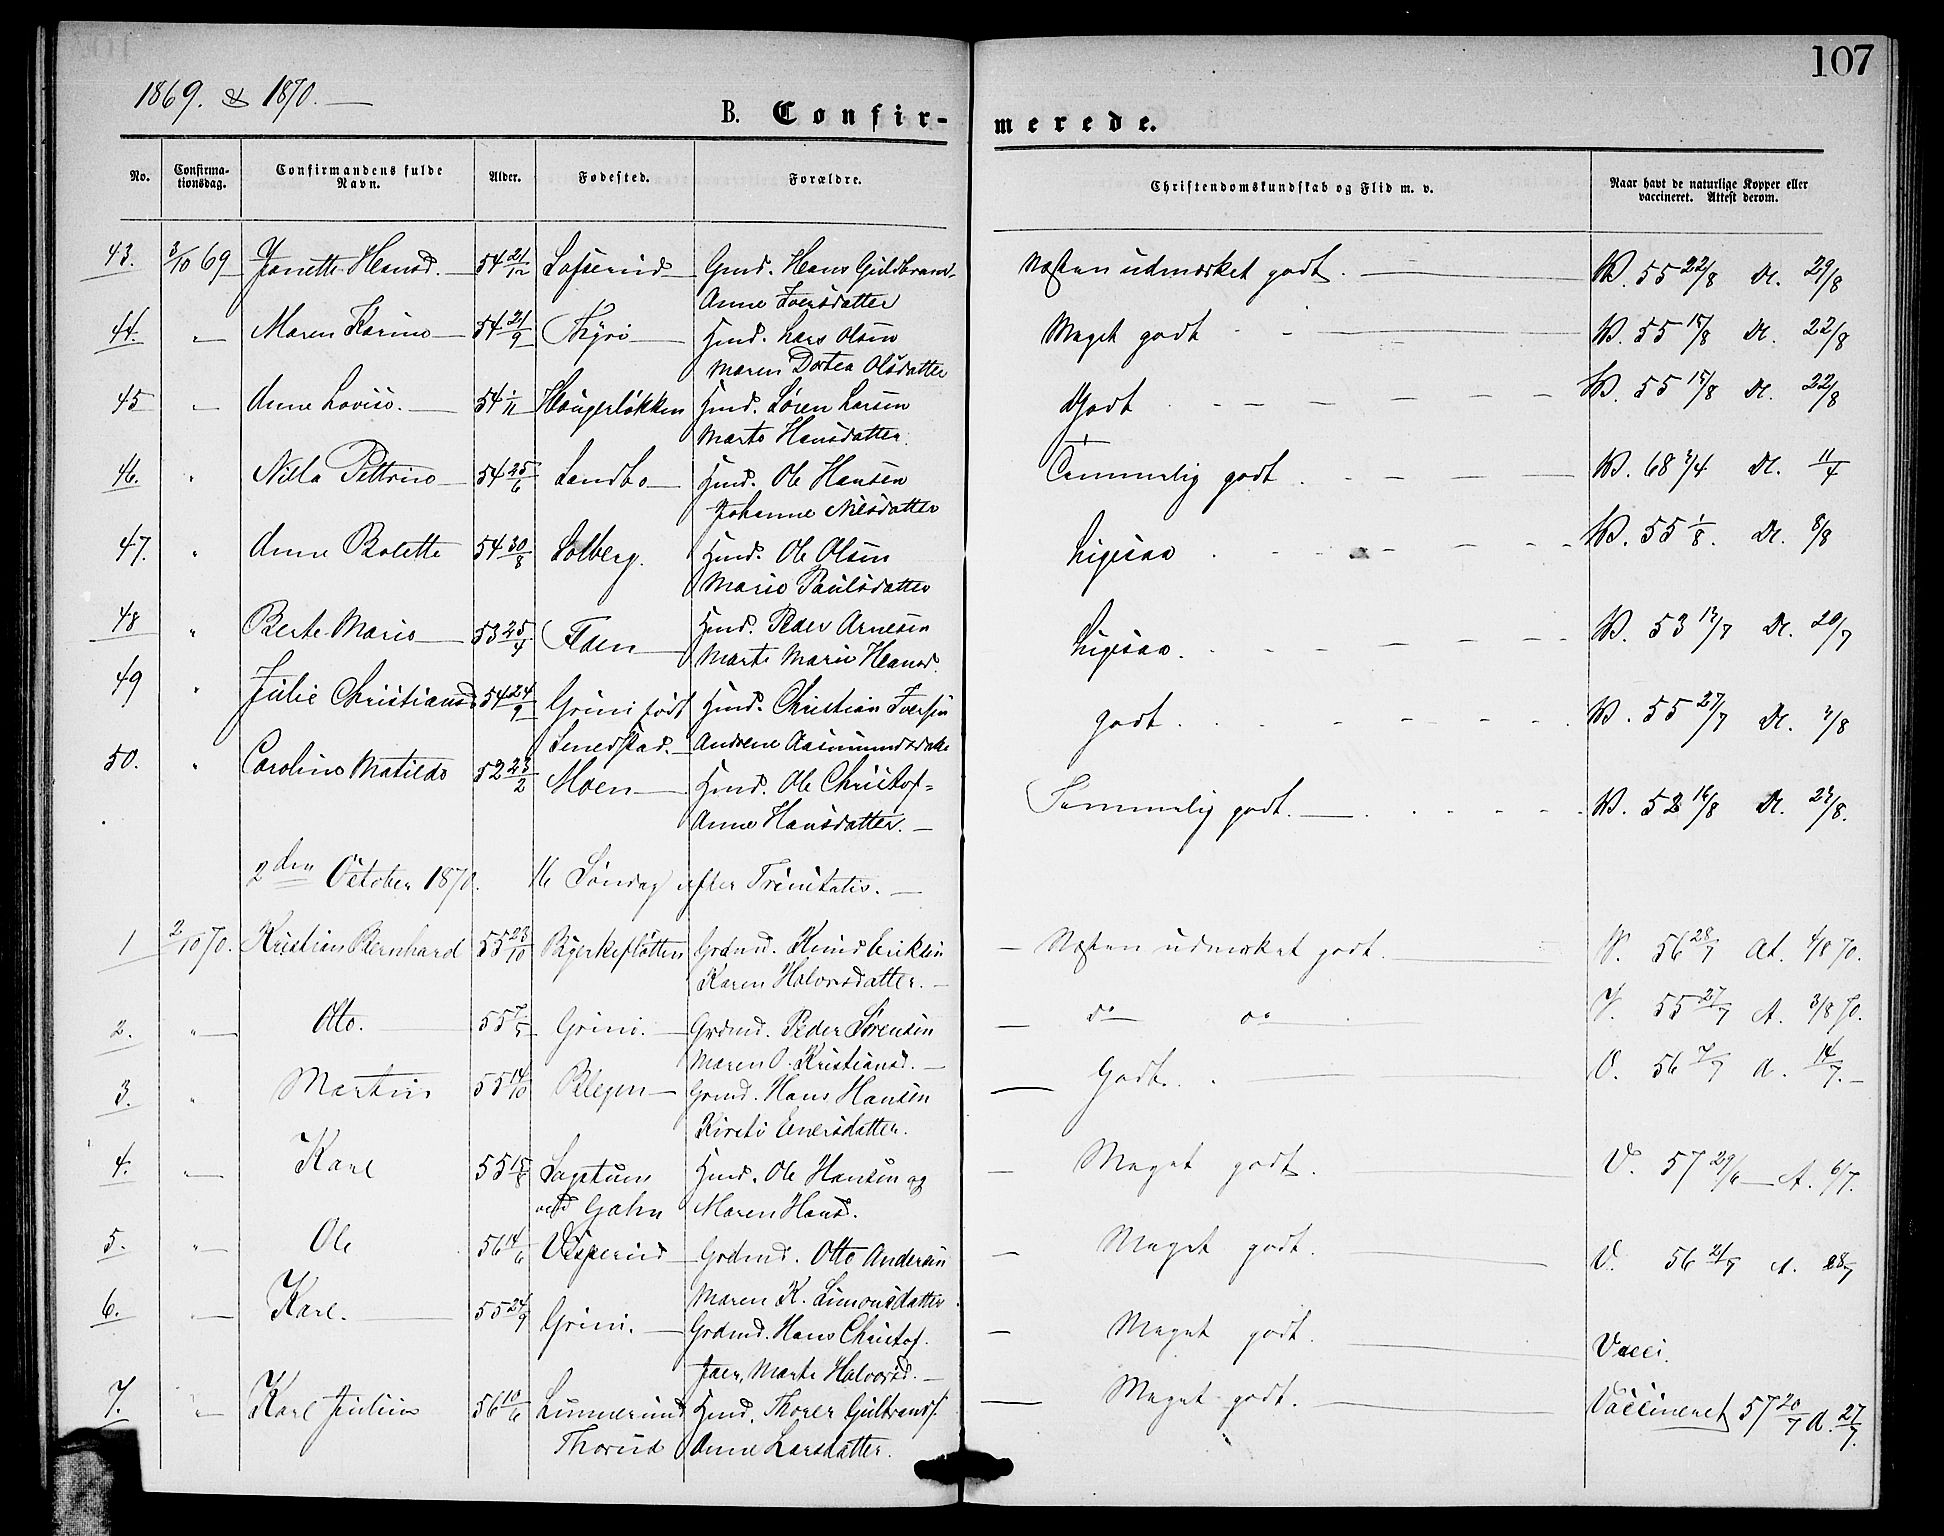 107
1869. & 1870.
B. Confir-
merede.
No.
Confirma-
tionsdag.
Confirmandens fulde
Navn.
Alder.
Fødested.
Forældre.
Christendomskundskab og Flid m. v.
Naar havt de naturlige Kopper eller
vaccineret. Attest derom.
43. 3/10 69 Janette Hansd. 54 21/12 Gmd. Hans Guldbrand- Næsten udmærket godt. V. 55 22/8 A. 29/8
Anne Iversdatter
44. " Maren Karine 54 21/9 Thyri Hmd. Lars Olsen Meget godt V. 55 15/8 A. 22/8
Maren Dortea Olsdatter
45 " Anne Lovise. 54 1/11 Haugerløkken Hmd. Søren Larsen Godt V. 55 15/8 A. 22/8
Marte Hansdatter.
46. " Nilla Pettrine 54 25/6 Sandbo Hmd. Ole Hansen Temmelig godt V. 68 4/4 A. 11/4
Johanne Nilsdatter
47. " Anne Bolette 54 30/8 Solberg. Hmd. Ole Olsen Ligesaa V. 55 1/8. A. 8/8
Marie Paulsdatter
48 " Berte Marie 53 25/4 Hmd. Peder Arnesen Ligesaa. V. 53 13/7 A. 20/7
Marte Marie Hansd.
49 " Julie Christiansd 54 24/9 Grini født Hmd. Christian Iversen godt. V. 55 27/7 A. 3/8
Senedstad. Andrene Aasmundsdatter
50. " Caroline Matilde 52 23/2 Moen Hmd. Ole Christof= Temmelig godt. V. 52 16/8 A. 23/8.
Anne Hansdatter.
2den October 1870. 16 Søndag efter Trinitatis.
1 2/10 70. Kristian Bernhard 55 23/10 Bjerkefløtten Grdmd. Knud Eriksen Næsten udmærket godt. V. 56 28/7 At. 4/8 70.
Karen Halvorsdatter.
2. " Otto. 55 7/5 Grini. Grdmd. Peder Sørensen do do V. 55 27/7 A. 3/8 70.
Maren O. Kristiansd.
3. " Martin 55 14/10 Blegen Grmd. Hans Hansen Godt. V. 56 7/7 A. 14/7.
Kirsti Enersdatter.
4. " Karl 55 15/8 Hmd. Ole Hansen og Meget godt. V. 57 29/6 A. 6/7.
ved Gahn Maren Hansd.
5. " Ole 56 14/6 Vesperud Grdmd. Otto Andersen Meget godt. V. 56 21/7 A. 28/7
Maren K. Simonsdatter.
6. " Karl. 55 24/9 Grini. Grdmd. Hans Christof. Meget godt. Vacci.
Marte Halvorsd.
7. " Karl Julius 56 10/6 Lunnerud Hmd. Thorer Gulbrands. Meget godt. Vaccineret 57 20/7 A. 27/7.
Thorud Anne Larsdatter.